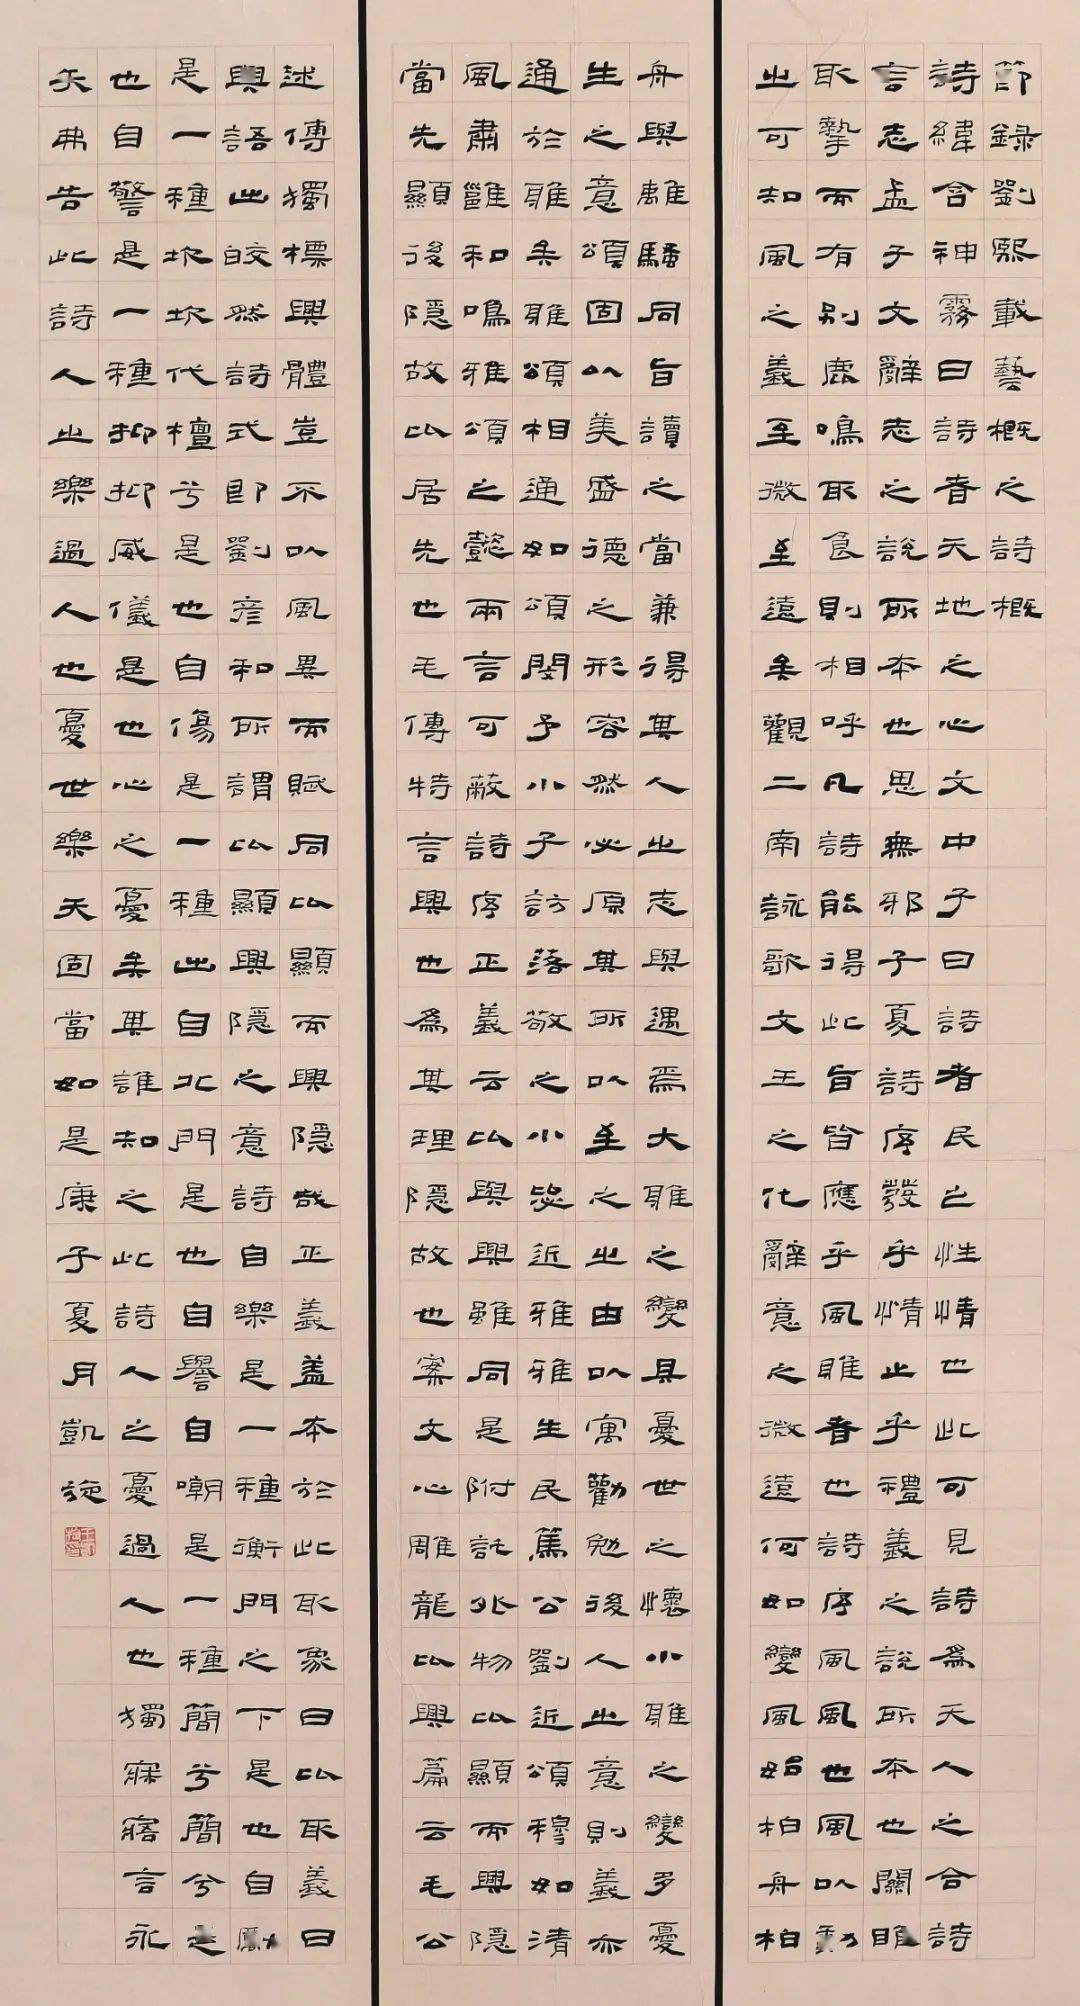 節錄劉熙載藝概之詩概
詩緯含神霧曰詩者天地之心文中子曰詩者民之性情也此可見詩爲天人之合詩
言志孟子文辭志之說所本也思無邪子夏詩序發乎情止乎禮義之說所本也關雎
取摯而有別鹿鳴取食則相呼凡詩能得此旨皆應乎風雅者也詩序風風也風以動
之可知風之義至微至遠矣觀二南詠歌文王之化辭意之微遠何如變風始柏舟柏
舟與離騷同旨讀之當兼得其人之志與遇焉大雅之變具憂世之懷小雅之變多憂
生之意頌固以美盛德之形容然必原其所以至之之由以寓勸勉後人之意則義亦
通於雅矣雅頌相通如頌閔予小子訪落敬之小毖近雅雅生民篤公劉近頌穆如清
風肅雝和鳴雅頌之懿兩言可蔽詩序正義云比與興雖同是附託外物比顯而興隱
當先顯後隱故比居先也毛傳特言興也爲其理隱故也案文心雕龍比興篇云毛公
述傳獨標興體豈不以風異而賦同比顯而興隱哉正義蓋本於此取象曰比取義曰
興語此皎然詩式即劉彥和所謂比顯興隱之意詩自樂是一種衡門之下是也自勵
是一種坎坎伐檀兮是也自傷是一種出自北門是也自譽自嘲是一種簡兮簡兮是
也自警是一種抑抑威儀是也心之憂矣其誰知之此詩人之憂過人也獨寐寤言永
矢弗告此詩人之樂過人也憂世樂天固當如是庚子夏月凱施